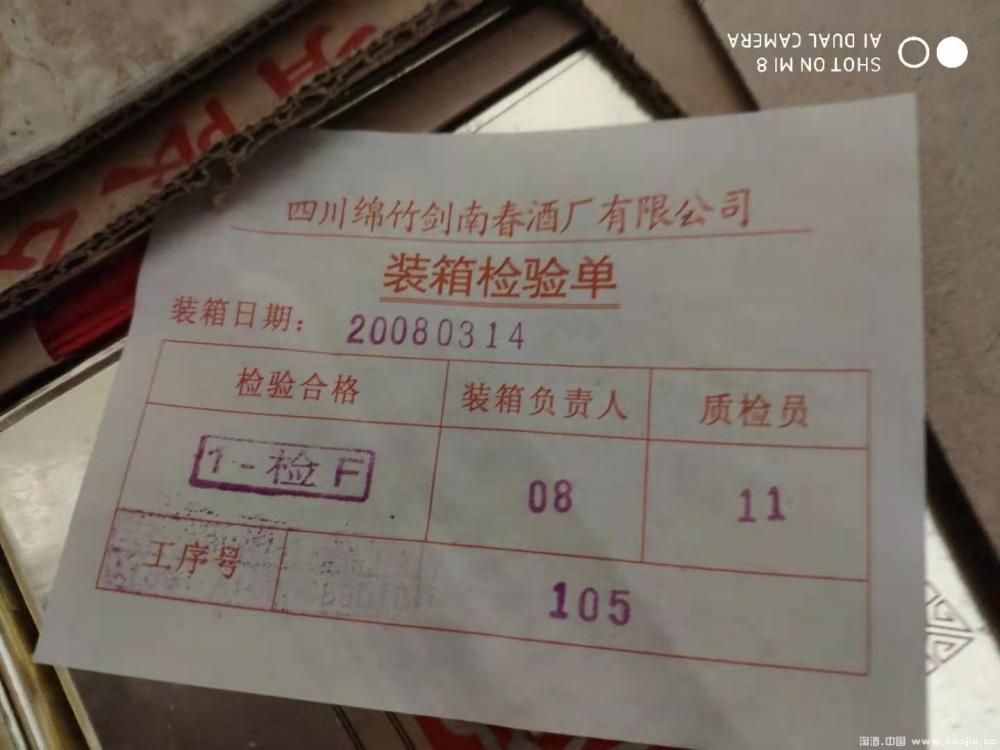 SHOT ON MI 8
AI DUAL CAMERA
四川绵竹剑南春酒厂有限公司
装箱检验单
装箱日期： 20080314
检验合格 装箱负责人 质检员
1-检F 08 11
工序号 105
淘酒.中国 www.taojiu.cc